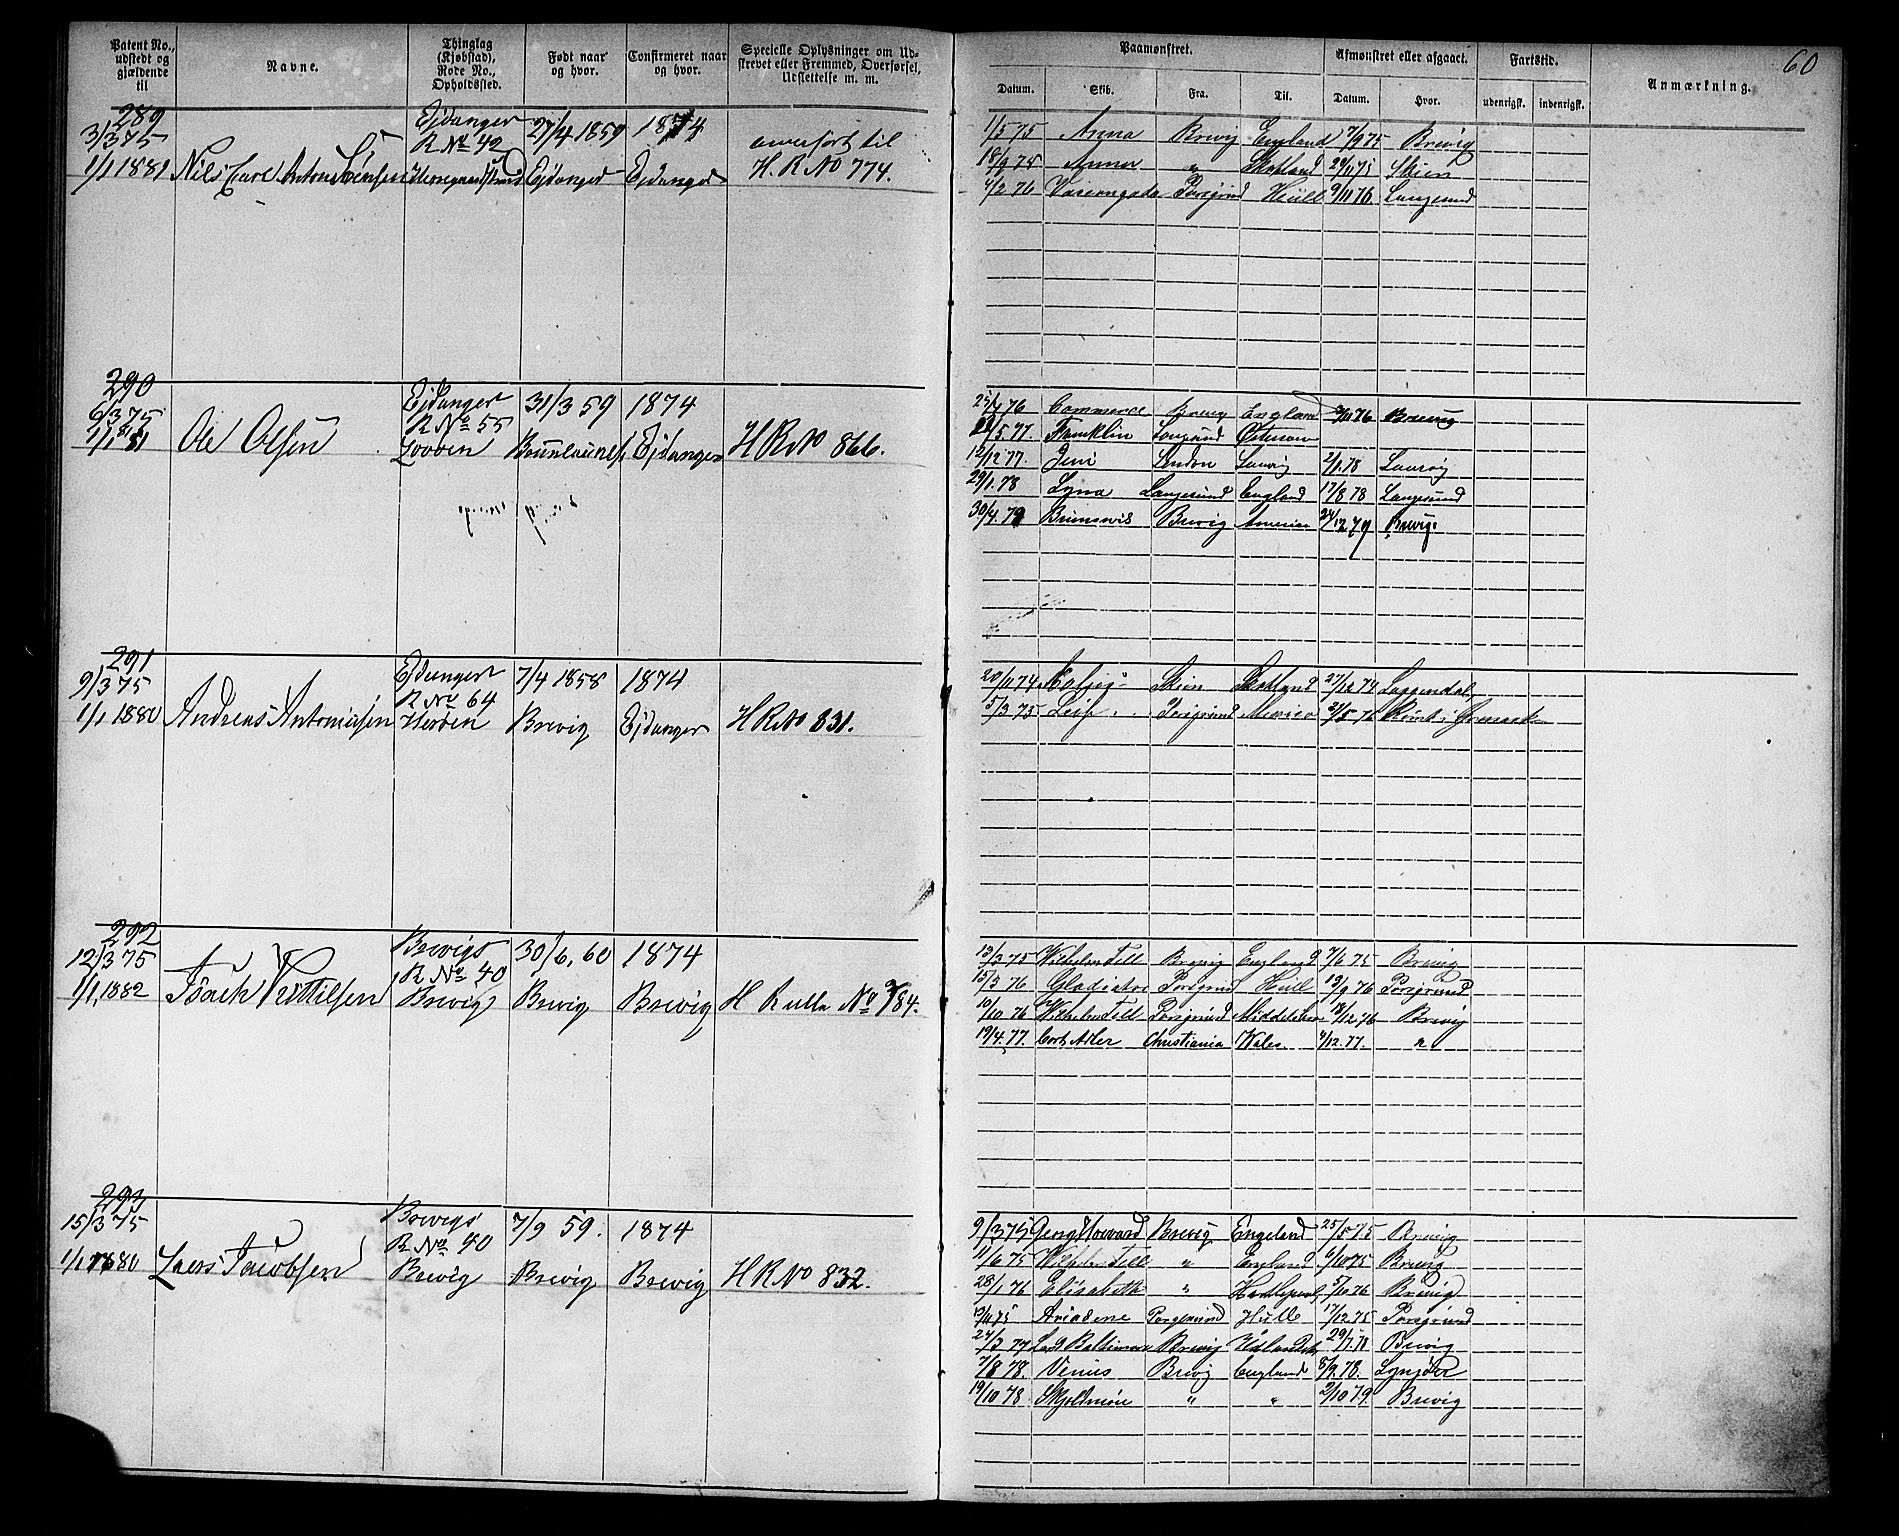 60
Patent No., udstedt og gjældende til
Navne.
Thinglag (Kjøbstad), Rode No., Opholdssted.
Født naar og hvor.
Confirmeret naar og hvor.
Specielle Oplysninger om Udskrevet eller Fremmed, Overførsel, Udslettelse m. m.
Paamønstret.
Afmønstret eller afgaaet.
Fartstid.
Anmærkning.
Datum. Skib. Fra. Til. Datum. Hvor. udenrigsk. indenrigsk.
289
3/3 75
1/1 1881
Nils Carl Anton
Ejdanger
R No 42
27/4 1859
Ejdanger
1874
Ejdanger
overfört til
H. R No 774.
1/5 75 Anna Brevig England 7/9 75 Brevig
18/9 75 Anna " Skotland 29/11 75 Skien
4/2 76 Porsgrund Hull 9/11 76 Langesund
290
6/3 75
1/1 81
Ole Olsen
Ejdanger
R No 55
31/3 59
1874
Ejdanger
H R No 866.
Commerce Brevig England Brevig
Franklin Langesund
12/12 77. London Laurvig 2/1 78 Laurvig
29/1. 78 Langesund England 17/8 78 Langesund
30/4 79 Brunsvik Brevig America 24/12 79 Brevig.
291
9/3 75
1/1 1880
Andreas Antonisen
Ejdanger
R No 64
Herøen
7/4 1858
Brevig
1874
Ejdanger
H R No 831.
20/11 74 Skien Skotland 27/12 74
5/3 75 Leif. Porsgrund Mexico
292
12/3 75
1/1, 1882
Isach Kittilsen
Brevigs
R No 40
Brevig
30/6, 60
Brevig
1874
Brevig
H Rulle No 784.
13/3 75 Wilhelm Tell Brevig England 7/6 75 Brevig
15/3 76 Gladiator Porsgrund Hull 13/9 76 Porsgrund
10/10 76 Wilhelm Tell Porsgrund 18/12 76 Brevig
19/4. 77. Cort Adler Christiania Wales. 4/12. 77. "
293
15/3 75
1/1 1880
Lars Jacobsen
Brevigs
R No 40
Brevig
7/9 59.
Brevig
1874
Brevig
H R No 832.
9/3 75 Georg Howard Brevig Engeland 25/5 75 Brevig
11/6 75 Wilhelm Tell " England 6/10 75 Brevig
28/1 76 Elisabeth " 5/10 76 Brevig
13/11 75 Ariadne Porsgrund Hull 17/12 75 Porsgrund
24/3 77 Lord Baltimore Brevig Brevig
7/8 78. Venus Brevig England 8/9. 78. Lyngør
19/10 78 Skjoldmøen " " 2/10 79. Brevig